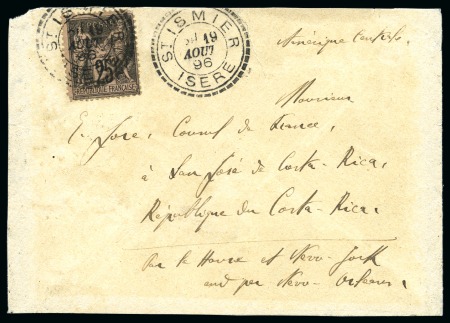 ST ISMIER
19
AOUT
96
ISERE
25
REPUBLIQUE FRANÇAISE
ST ISMIER
19
AOUT
96
ISERE
Amérique Centrale
Monsieur
Consul de France,
à San José de Costa-Rica,
République du Costa-Rica,
Par le Havre et New-York
and per New-Orleans